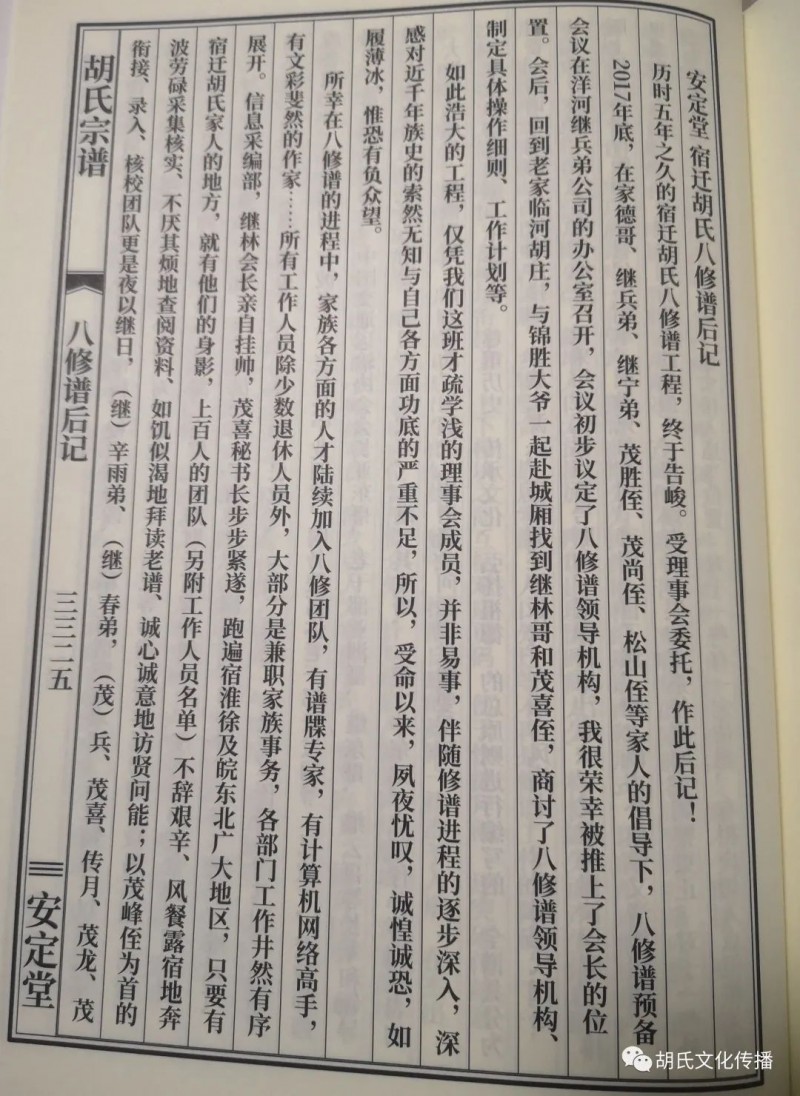 安定堂 宿迁胡氏八修谱后记
历时五年之久的宿迁胡氏八修谱工程，终于告峻。受理事会委托，作此后记！
2017年底，在家德哥、继兵弟、继宁弟、茂胜侄、茂尚侄、松山侄等家人的倡导下，八修谱预备
会议在洋河继兵弟公司的办公室召开，会议初步议定了八修谱领导机构，我很荣幸被推上了会长的位
置。会后，回到老家临河胡庄，与锦胜大爷一起赴城厢找到继林哥和茂喜侄，商讨了八修谱领导机构、
制定具体操作细则、工作计划等。
如此浩大的工程，仅凭我们这班才疏学浅的理事会成员，并非易事，伴随修谱进程的逐步深入，深
感对近千年族史的索然无知与自己各方面功底的严重不足，所以，受命以来，夙夜忧叹，诚惶诚恐，如
履薄冰，惟恐有负众望。
所幸在八修谱的进程中，家族各方面的人才陆续加入八修团队，有谱牒专家，有计算机网络高手，
有文彩斐然的作家……所有工作人员除少数退休人员外，大部分是兼职家族事务，各部门工作井然有序
展开。信息采编部，继林会长亲自挂帅，茂喜秘书长步步紧遂，跑遍宿淮徐及皖东北广大地区，只要有
宿迁胡氏家人的地方，就有他们的身影，上百人的团队（另附工作人员名单）不辞艰辛、风餐露宿地奔
波劳碌采集核实、不厌其烦地查阅资料、如饥似渴地拜读老谱、诚心诚意地访贤问能；以茂峰侄为首的
衔接、录入、核校团队更是夜以继日，（继）辛雨弟、（继）春弟，（茂）兵、茂喜、传月、茂龙、茂
胡氏宗谱
八修谱后记
三三二五
安定堂
胡氏文化传播